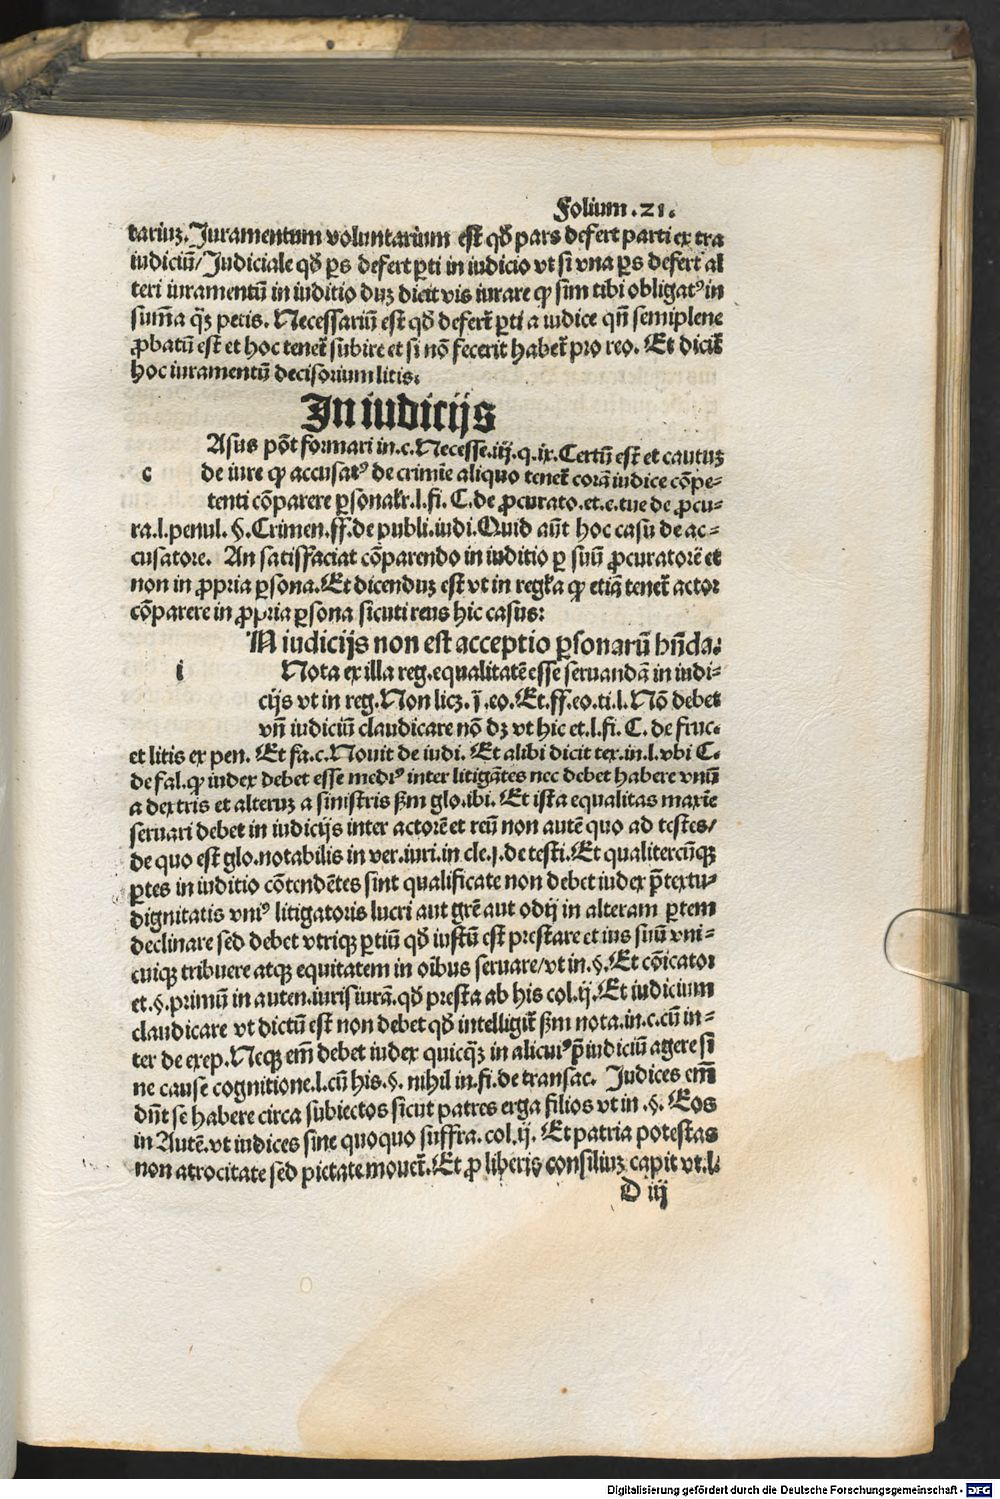 Folium .21.
tariuʒ. Juramentum voluntarium est qđ pars defert parti ex tra
iudiciū/ Judiciale qđ ꝑs defert ꝑti in iudicio vt si vna ꝑs defert al
teri iuramentū in iuditio duʒ dicit vis iurare ꝙ sim tibi obligatꝰ in
sum̄a q̄ʒ petis. Necessariū est qđ defert̄ ꝑti a iudice qn̄ semiplene
ꝓbatū est et hoc tenet̄ subire et si nō fecerit habet̄ pro reo. Et dicit̄
hoc iuramentū decisorium litis.
In iudicijs
c
Asus pōt formari in .c. Necesse .iij. q. ix. Certū est et cautuʒ
de iure ꝙ accusatꝰ de crimīe aliquo tenet̄ corā iudice cōpe⸗
tenti cōparere ꝑsonalr̄. l. fi. C. de ꝓcurato. et .c. tue de ꝓcu⸗
ra. l. penul. §. Crimen. ff. de publi. iudi. Quid aūt hoc casu de ac⸗
cusatore. An satisfaciat cōparendo in iuditio ꝑ suū ꝓcuratorē et
non in ꝓpria ꝑsona. Et dicenduʒ est vt in regl̄a ꝙ etiā tenet̄ actor
cōparere in ꝓpria ꝑsona sicuti reus hic casus:
i
N iudicijs non est acceptio ꝑsonarū hn̄da.
Nota ex illa reg. equalitatē esse seruandā in iudi⸗
cijs vt in reg. Non licʒ. j̄. eo. Et. ff. eo. ti. l. Nō debet
vn̄ iudiciū claudicare nō dʒ vt hic et. l. fi. C. de fruc.
et litis ex pen. Et fa. c. Nouit de iudi. Et alibi dicit tex. in. l. vbi C.
de fal. ꝙ iudex debet esse mediꝰ inter litigātes nec debet habere vnū
a dextris et alteruʒ a sinistris ẜm glo. ibi. Et ista equalitas maxīe
seruari debet in iudicijs inter actorē et reū non autē quo ad testes/
de quo est glo. notabilis in ver. iuri. in cle. j. de testi. Et qualitercūqʒ
ꝑtes in iuditio cōtendētes sint qualificate non debet iudex p̄textu⸗
dignitatis vniꝰ litigatoris lucri aut grē aut odij in alteram ꝑtem
declinare sed debet vtriqʒ ꝑtiū qđ iustū est prestare et ius suū vni⸗
cuiqʒ tribuere atqʒ equitatem in oībus seruare/ vt in. §. Et cōicator
et. §. primū in auten. iurisiurā. qđ presta ab his col. ij. Et iudicium
claudicare vt dictū est non debet qđ intelligit̄ ẜm nota. in. c. cū in⸗
ter de excep. Neqʒ em̄ debet iudex quicq̄ʒ in alicuiꝰ p̄iudiciū agere si
ne cause cognitione. l. cū his. §. nihil in. fi. de transac. Judices em̄
dn̄t se habere circa subiectos sicut patres erga filios vt in. §. Eos
in Autē. vt iudices sine quoquo suffra. col. ij. Et patria potestas
non atrocitate sed pietate mouet̄. Et ꝓ liberis consiliuʒ capit vt. l.
D iij
Digitalisierung gefördert durch die Deutsche Forschungsgemeinschaft - DFG